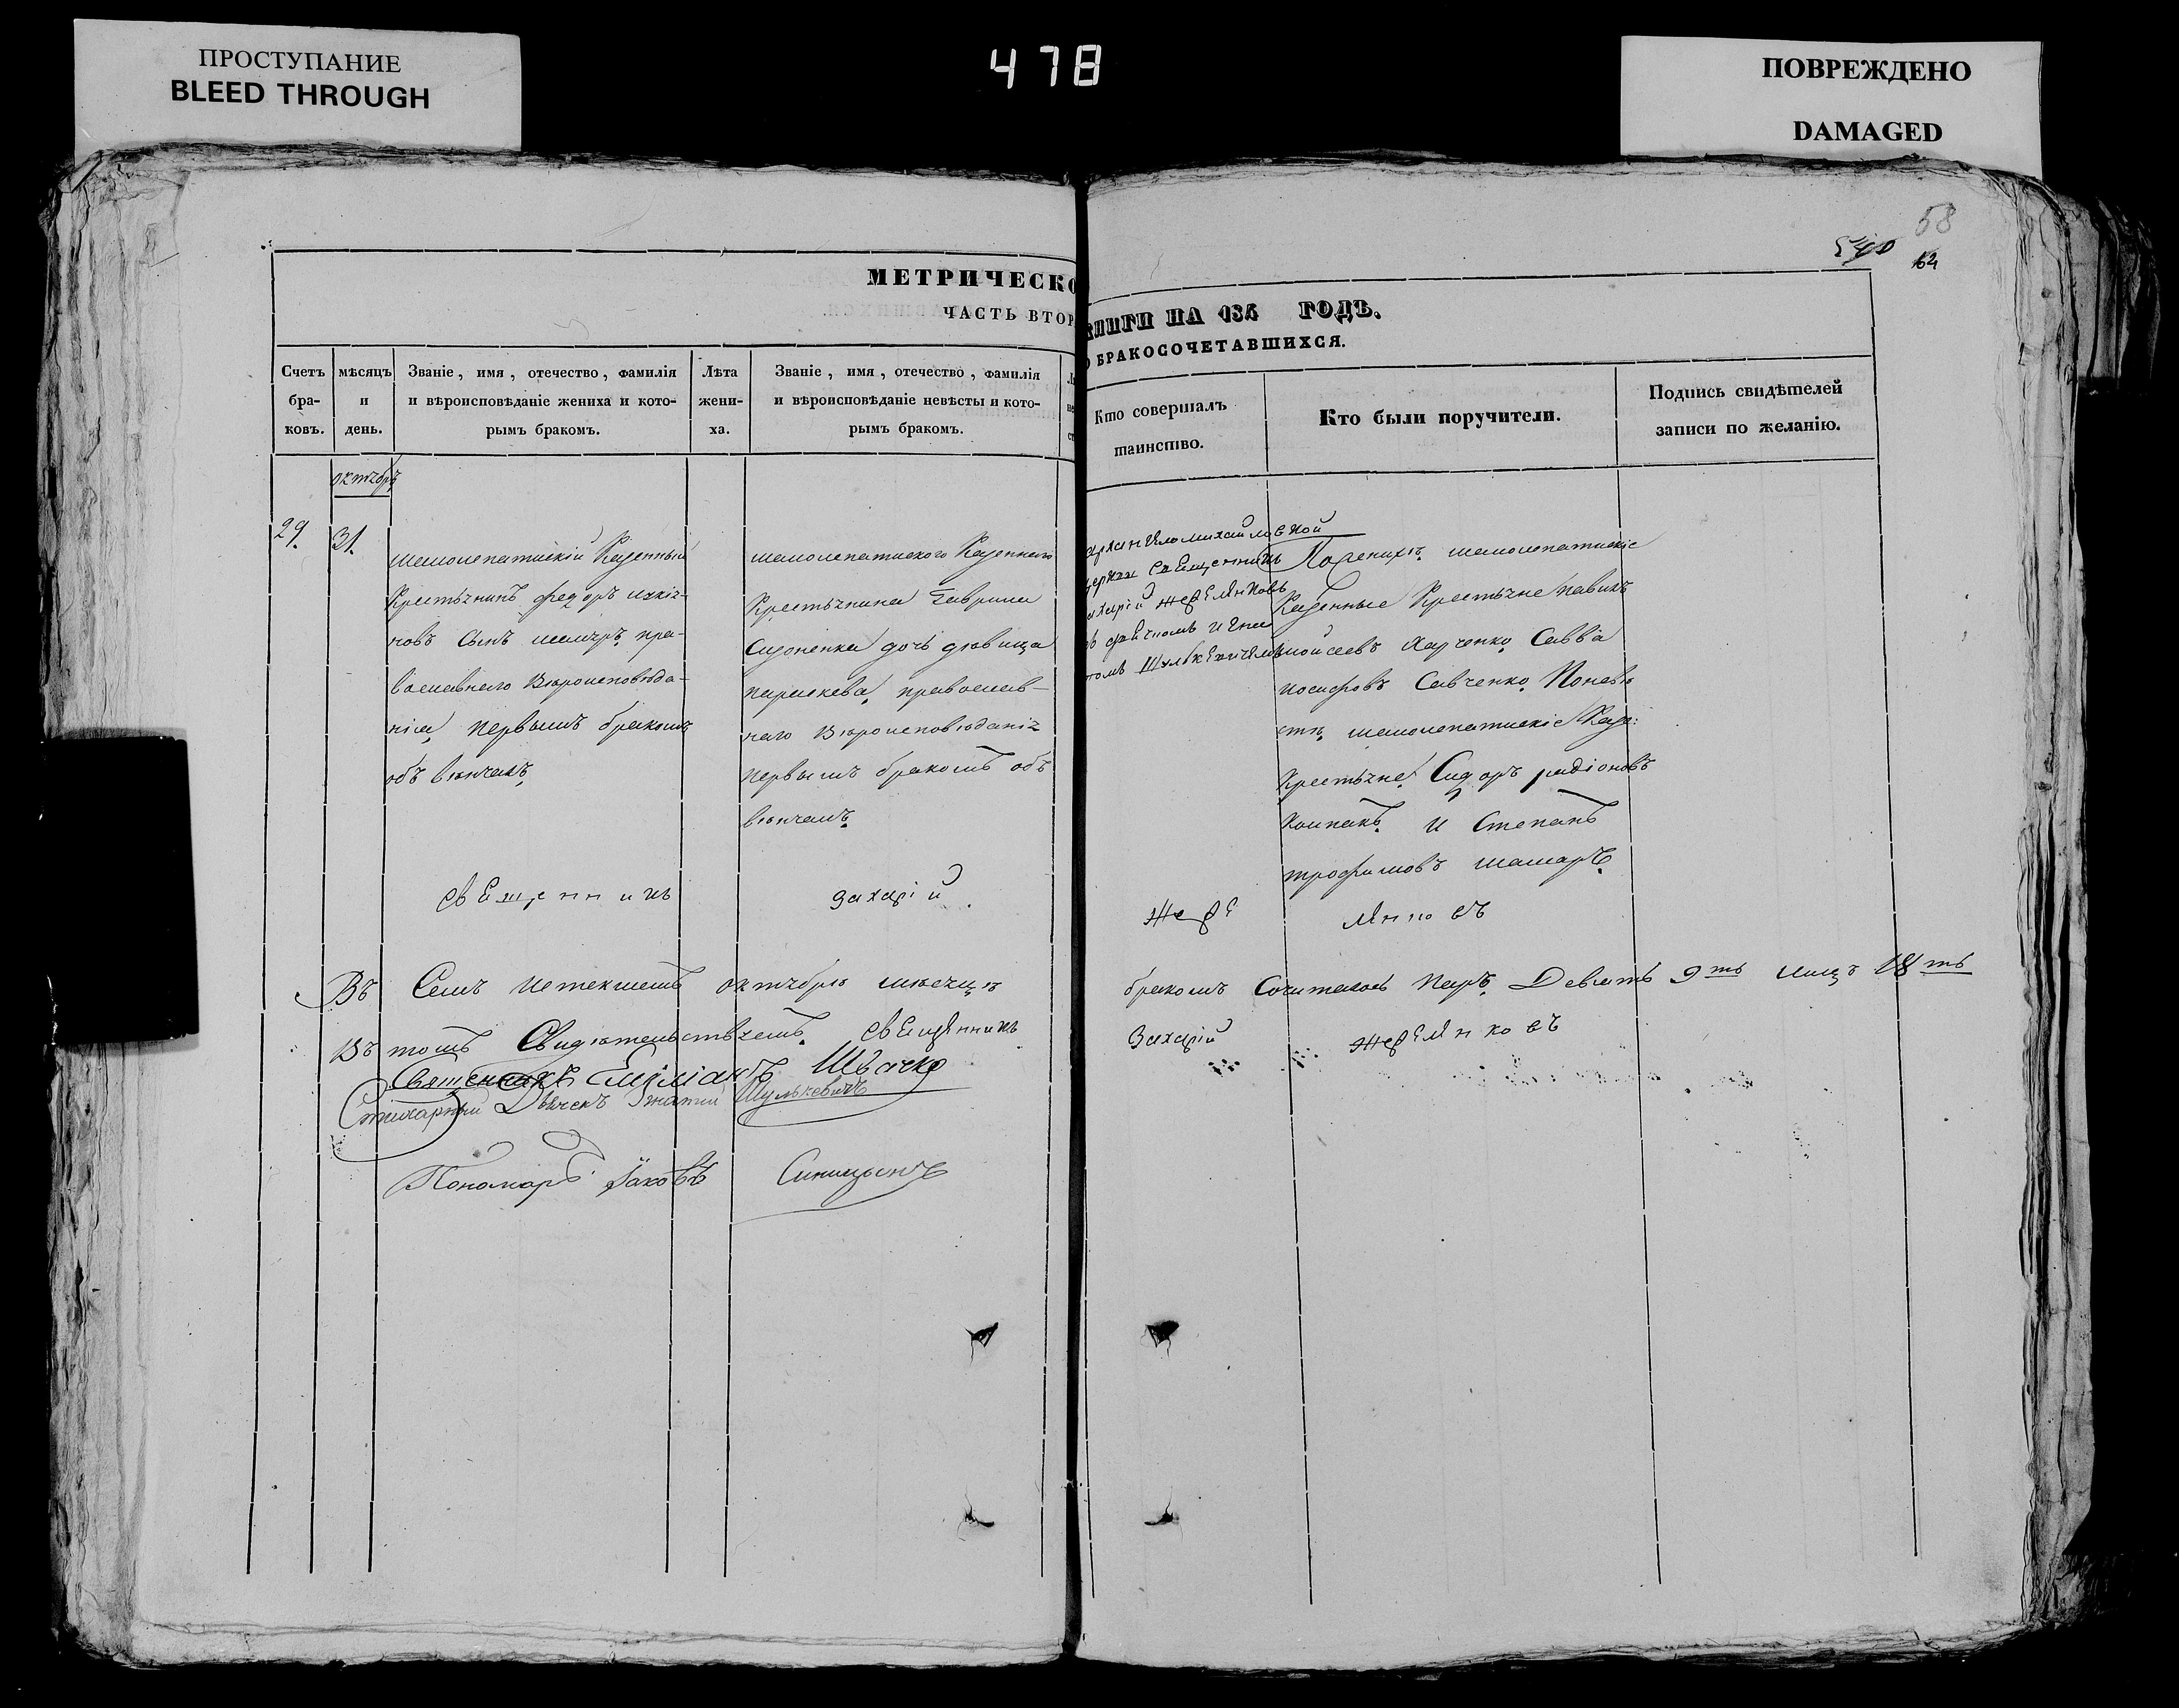 ПРОСТУПАНИЕ
BLEED THROUGH
478
ПОВРЕЖДЕНО
DAMAGED
58
64
МЕТРИЧЕСКО
ЧАСТЬ ВТОР
КНИГИ НА 185 ГОДЪ.
О БРАКОСОЧЕТАВШИХСЯ.
Счетъ бра-ковъ.
мѣсяцъ и день.
Званіе, имя, отечество, фамилія
и вѣроисповѣданіе жениха и кото-
рымъ бракомъ.
Лѣта жени-ха.
Званіе, имя, отечество, фамилія
и вѣроисповѣданіе невѣсты и кото-
рымъ бракомъ.
Кто совершалъ
таинство.
Кто были поручители.
Подпись свидѣтелей
записи по желанію.
октябрь
29. 31.
шаполепатискій Казенный
Крестьянинъ федоръ
новъ Сынъ пра-
вославнаго Вѣроисповѣда-
нія первымъ бракомъ
объ вѣнчанъ
Казеннаго
Крестьянина Гаврила
дочь дѣвица
параскева православ-
наго Вѣроисповѣданія
первымъ бракомъ объ
вѣнчанъ
архангеломихайловской
церкви Священникъ
захарій жереляковъ
Шулькевичемъ
По женихѣ
Казенные Крестьяне павелъ
моисеевъ Харченко Савва
иосифовъ Савченко По невѣ
стѣ Каз:
Крестьяне Сидоръ радіоновъ
Компанъ и Степанъ
трофимовъ шамаръ
священникъ захарій
жере ляковъ
Въ Семъ истекшемъ октябрѣ мѣсяцѣ бракомъ Сочиталось паръ Девять 9ть лицъ 18ть
Въ томъ Свидѣтельствуемъ священникъ Захарій жереляковъ
Священникъ Емиліанъ Швачко
Стихарный Дьячекъ Игнатій Шулькевичъ
Пономарь Іаковъ Синицынъ